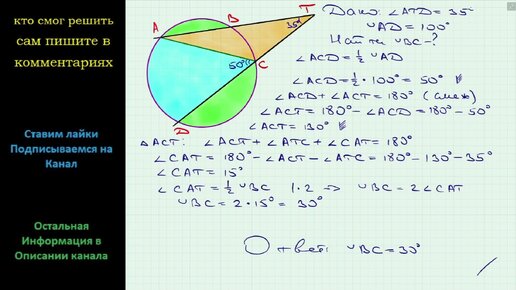 кто смог решить
сам пишите в
комментариях
Ставим лайки
Подписываемся на
Канал
Остальная
Информация в
Описании канала
A
B
T
35°
50°
C
D
Дано: ∠ATD = 35°
◡AD = 100°
Найти ◡BC - ?
∠ACD = 1/2 ◡AD
∠ACD = 1/2 · 100° = 50°
∠ACD + ∠ACT = 180° (смеж)
∠ACT = 180° - ∠ACD = 180° - 50°
∠ACT = 130°
△ACT: ∠ACT + ∠ATC + ∠CAT = 180°
∠CAT = 180° - ∠ACT - ∠ATC = 180° - 130° - 35°
∠CAT = 15°
∠CAT = 1/2 ◡BC | · 2 ⇒ ◡BC = 2∠CAT
◡BC = 2 · 15° = 30°
Ответ: ◡BC = 30°